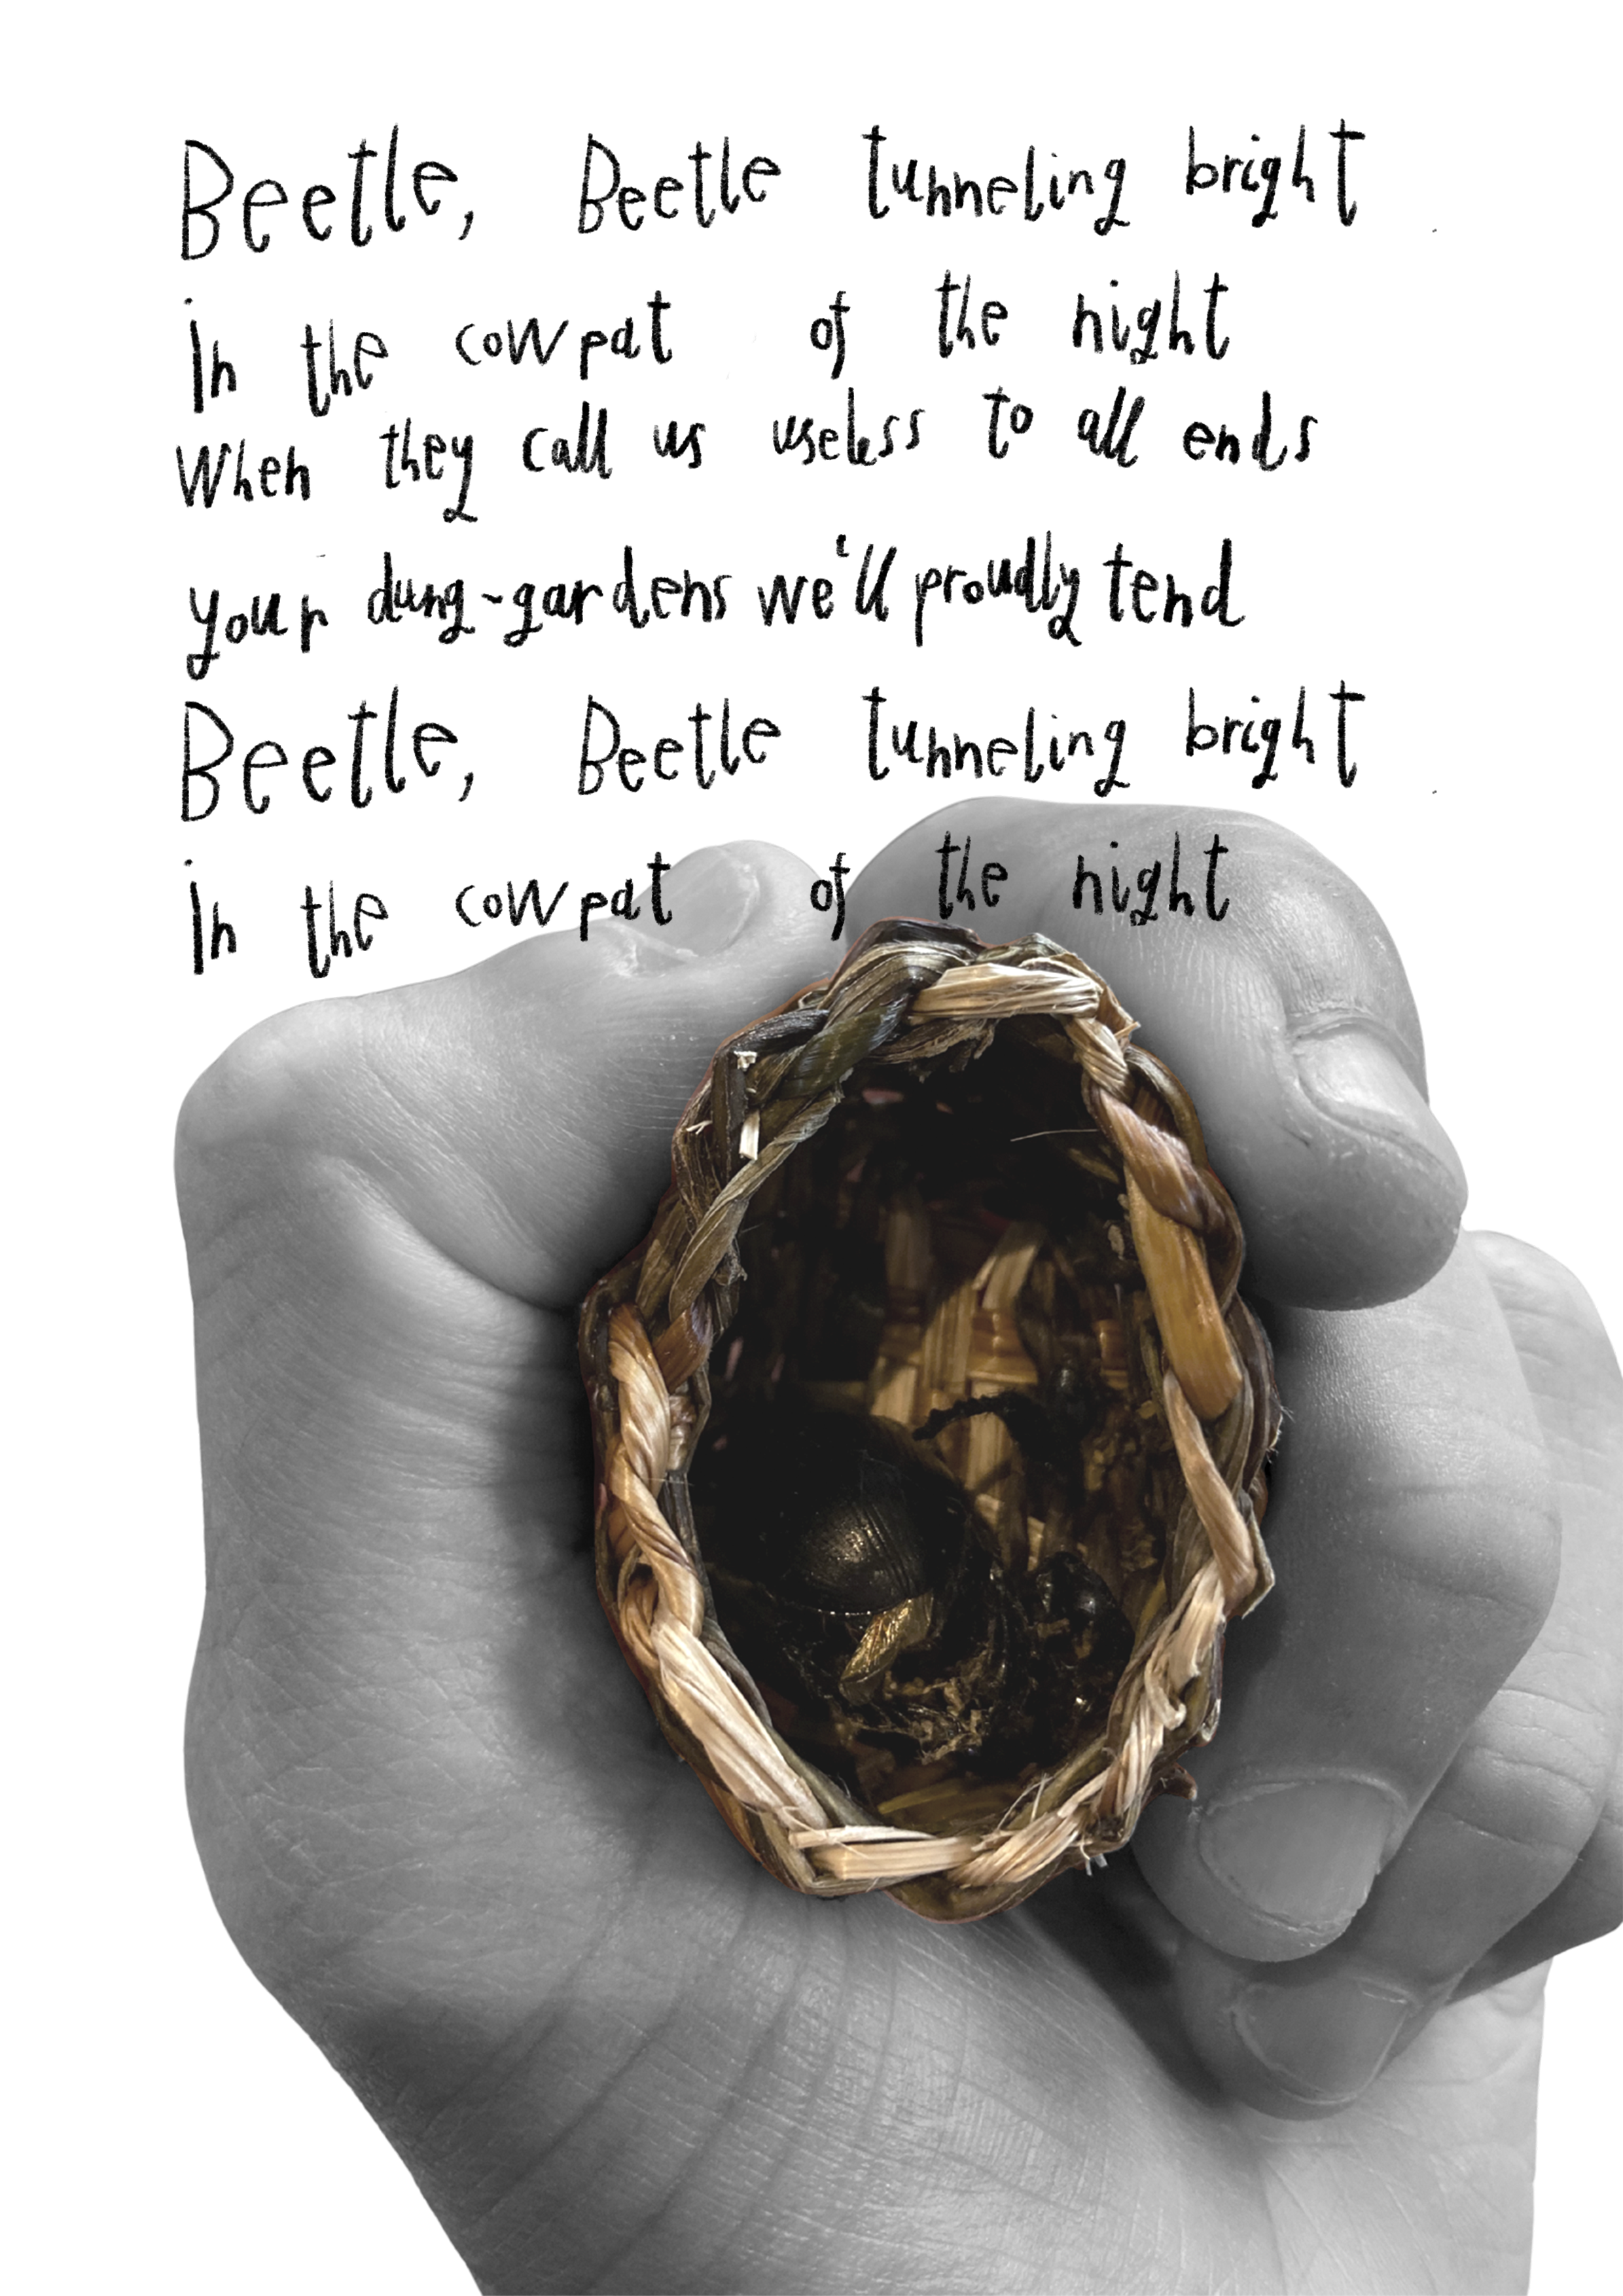 Beetle, Beetle tunneling bright
in the cowpat of the night
When they call us useless to all ends
your dung-gardens we'll proudly tend
Beetle, Beetle tunneling bright
in the cowpat of the night